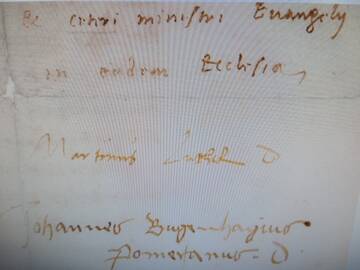 et ceteri ministri Evangelij
in eadem Ecclesia,
Martinus Luther D
Johannes Bugenhagius
Pomeranus. D.